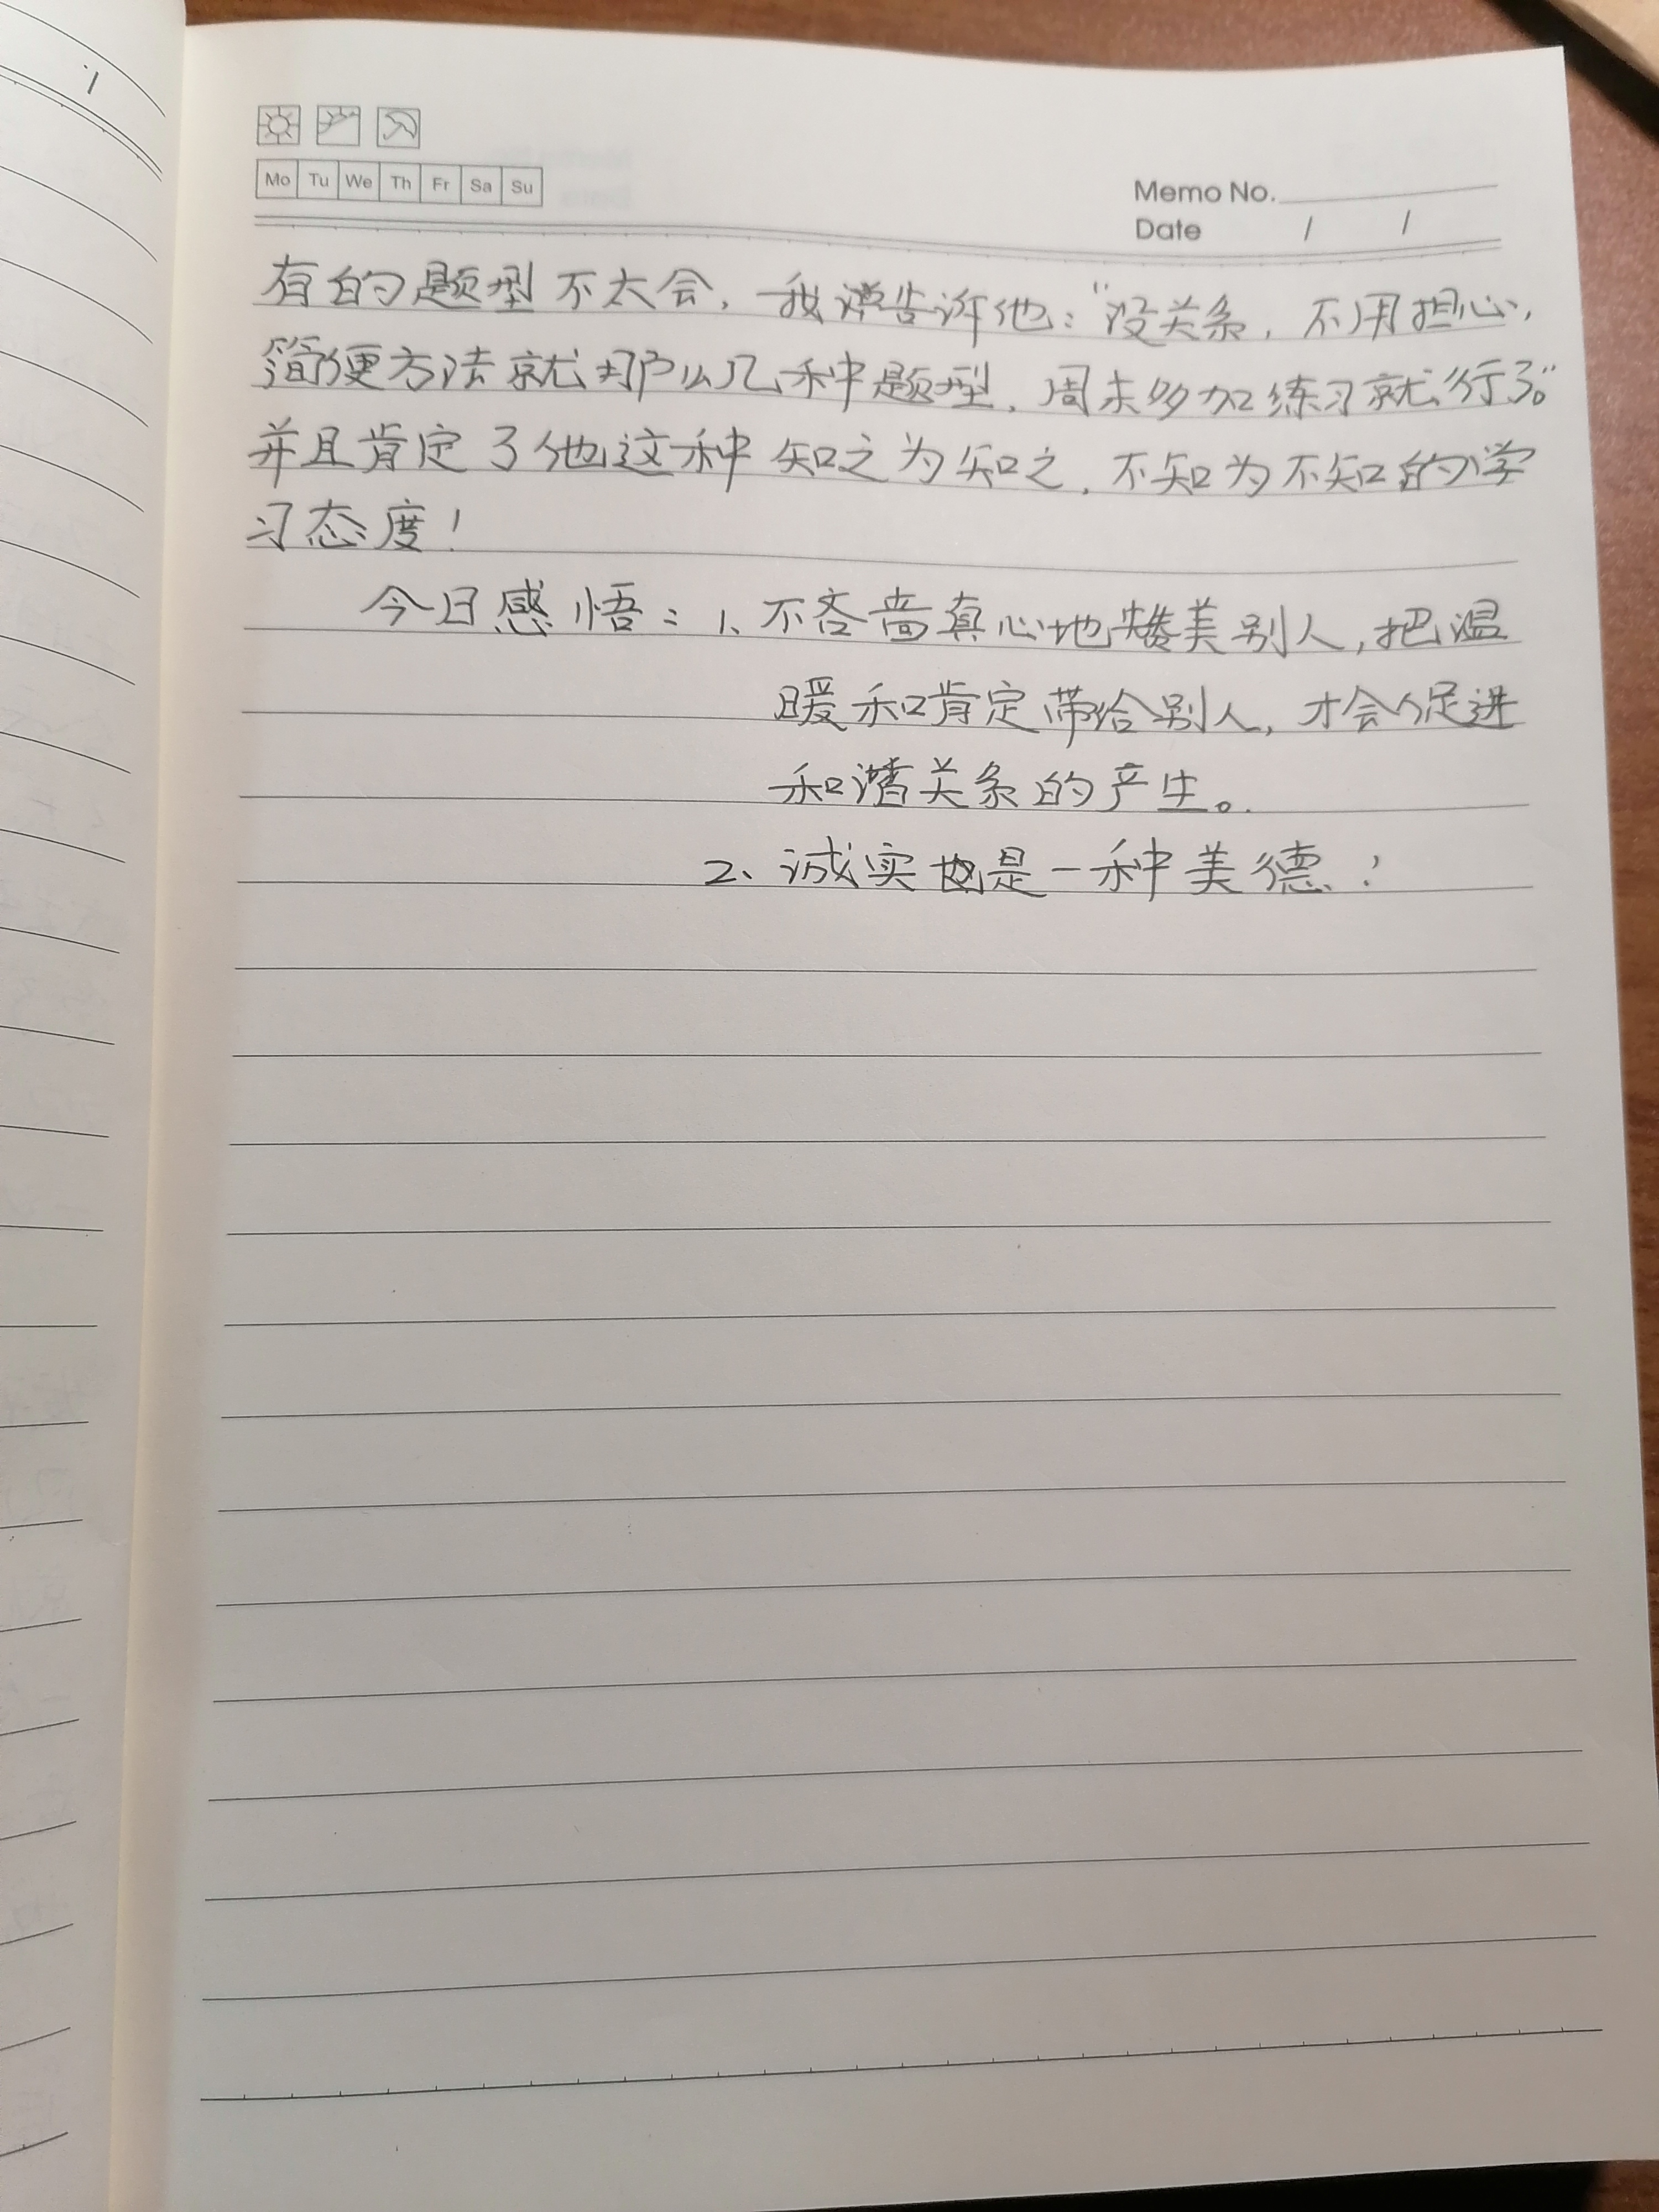 Mo Tu We Th Fr Sa Su
Memo No.
Date / /
有的题型不太会，我告诉他：“没关系，不用担心，
简便方法就那么几种题型，周末多加练习就行了。”
并且肯定了他这种知之为知之，不知为不知的学
习态度！
今日感悟：1、不吝啬真心地赞美别人，把温
暖和肯定带给别人，才会促进
和谐关系的产生。
2、诚实也是一种美德！